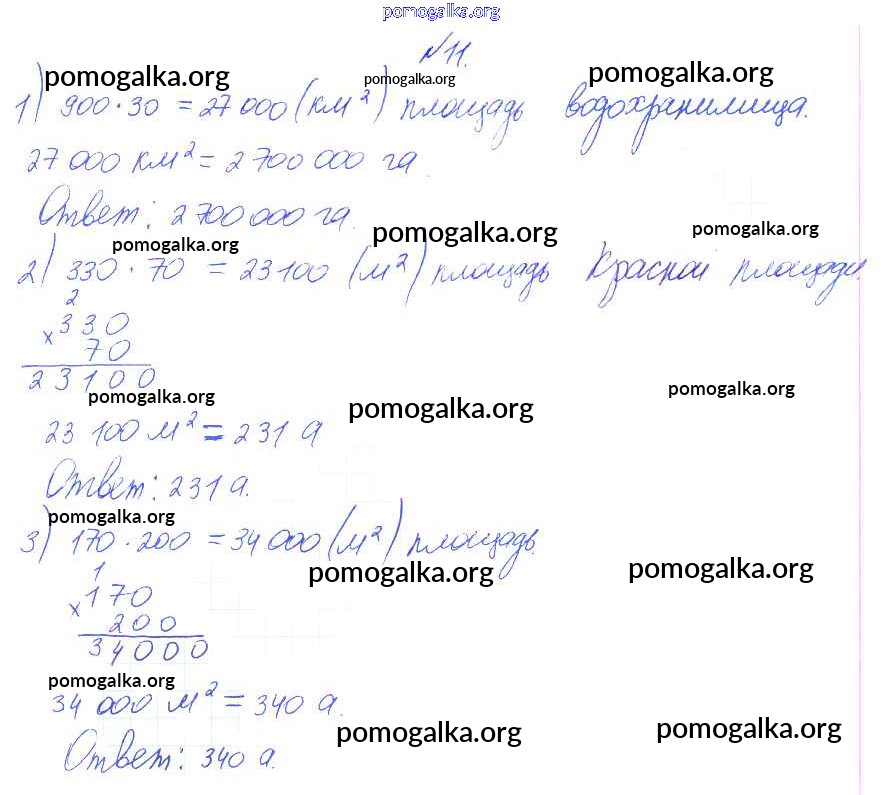 pomogalka.org
№11.
pomogalka.org pomogalka.org pomogalka.org
1) 900 · 30 = 27 000 (км²) площадь водохранилища.
27 000 км² = 2 700 000 га
Ответ: 2 700 000 га.
pomogalka.org pomogalka.org pomogalka.org
2) 330 · 70 = 23100 (м²) площадь Красной площади.
2
× 330
70
23100
pomogalka.org pomogalka.org pomogalka.org
23 100 м² = 231 а
Ответ: 231 а.
pomogalka.org
3) 170 · 200 = 34 000 (м²) площадь.
pomogalka.org pomogalka.org
1
× 170
200
34000
pomogalka.org
34 000 м² = 340 а.
pomogalka.org pomogalka.org
Ответ: 340 а.